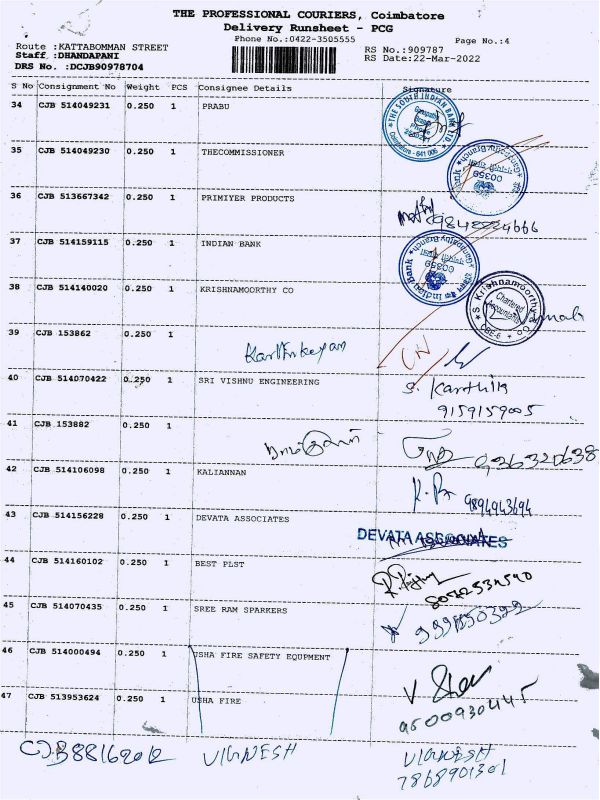 THE PROFESSIONAL COURIERS, Coimbatore
Delivery Runsheet - PCG
Phone No.:0422-3505555
Page No.:4
Route :KATTABOMMAN STREET
RS No.:909787
Staff :DHANDAPANI
RS Date:22-Mar-2022
DRS No. :DCJB90978704
S No Consignment No Weight PCS Consignee Details Signature
34 CJB 514049231 0.250 1 PRABU
THE SOUTH INDIAN BANK LTD.
Coimbatore - 641 006
35 CJB 514049230 0.250 1 THECOMMISSIONER
00359
36 CJB 513667342 0.250 1 PRIMIYER PRODUCTS
37 CJB 514159115 0.250 1 INDIAN BANK
Indian Bank
Ganapathy Branch
00359
38 CJB 514140020 0.250 1 KRISHNAMOORTHY CO
S Krishnamoorthy Co
Chartered
Accountants
CBE-6
39 CJB 153862 0.250 1
Karthikeyan
40 CJB 514070422 0.250 1 SRI VISHNU ENGINEERING
S. Karthik
9159159005
41 CJB 153882 0.250 1
42 CJB 514106098 0.250 1 KALIANNAN
9894943694
43 CJB 514156228 0.250 1 DEVATA ASSOCIATES
DEVATA ASSOCIATES
44 CJB 514160102 0.250 1 BEST PLST
45 CJB 514070435 0.250 1 SREE RAM SPARKERS
46 CJB 514000494 0.250 1 USHA FIRE SAFETY EQUPMENT
47 CJB 513953624 0.250 1 USHA FIRE
9500930445
CJB88162012 VIGNESH VIGNESH
7868901301